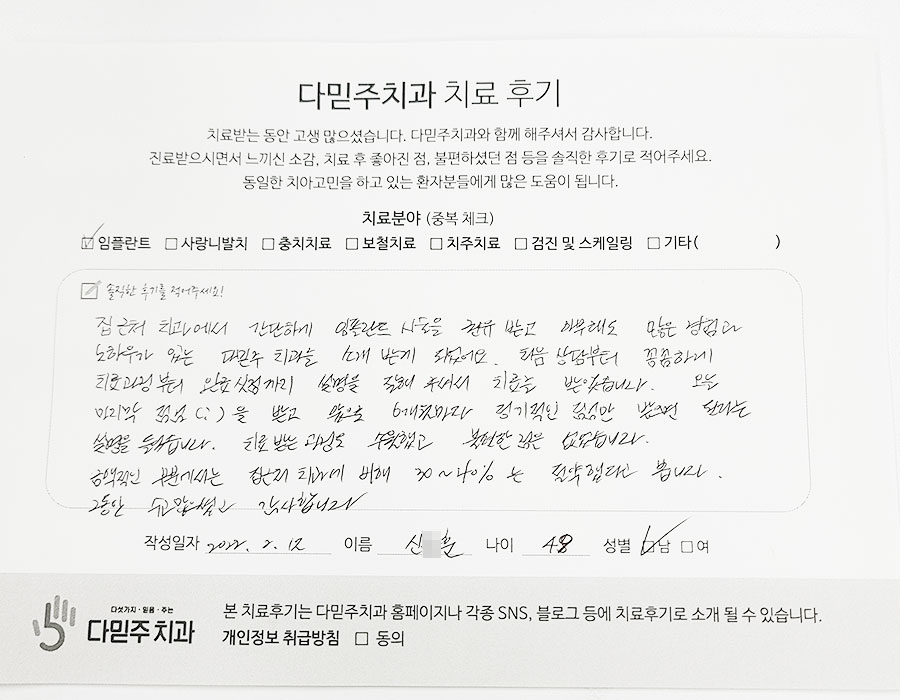 다믿주치과 치료 후기
치료받는 동안 고생 많으셨습니다. 다믿주치과와 함께 해주셔서 감사합니다.
진료받으시면서 느끼신 소감, 치료 후 좋아진 점, 불편하셨던 점 등을 솔직한 후기로 적어주세요.
동일한 치아고민을 하고 있는 환자분들에게 많은 도움이 됩니다.
치료분야 (중복 체크)
☑ 임플란트 □ 사랑니발치 □ 충치치료 □ 보철치료 □ 치주치료 □ 검진 및 스케일링 □ 기타( )
솔직한 후기를 적어주세요!
집 근처 치과에서 간단하게 임플란트 시술을 권유 받고 아무래도 많은 경험과
노하우가 있는 다믿주 치과를 소개 받게 되었어요. 처음 상담부터 꼼꼼하게
치료과정부터 완료시점까지 설명을 잘해 주셔서 치료를 받았습니다. 오늘
마지막 점검(;)을 받고 앞으로 6개월마다 정기적인 점검만 받으면 된다는
설명을 들었습니다. 치료 받는 과정도 수월했고 불편한 점은 없었습니다.
금액적인 부분에서는 집근처 치과에 비해 30~40% 는 절약했다고 봅니다.
그동안 수고많으셨고 감사합니다
작성일자 2022. 2. 12 이름 신 훈 나이 48 성별 ☑남 □여
다섯가지·믿음·주는
다믿주치과
본 치료후기는 다믿주치과 홈페이지나 각종 SNS, 블로그 등에 치료후기로 소개 될 수 있습니다.
개인정보 취급방침 □ 동의